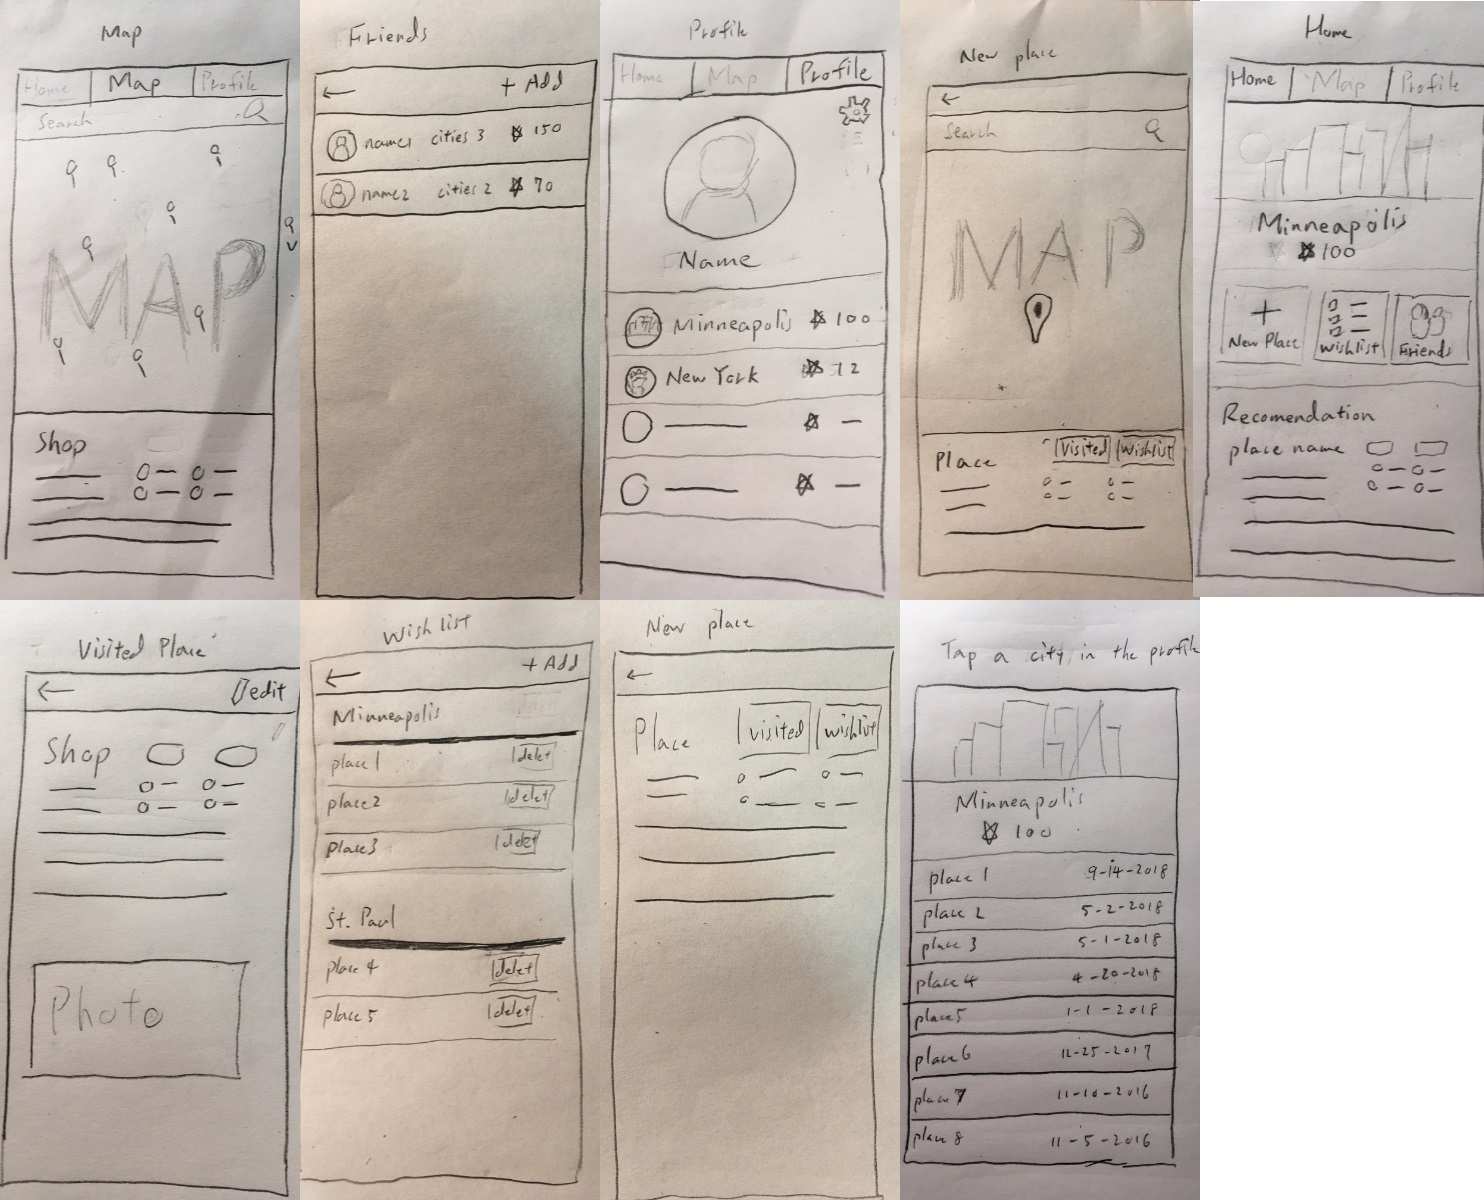 Map
Home Map Profile
Search
MAP
Shop
Friends
← + Add
name1 cities 3 ☆ 150
name2 cities 2 ☆ 70
Profile
Home Map Profile
Name
Minneapolis ☆ 100
New York ☆ 12
☆ —
☆ —
New place
←
Search
MAP
Place Visited Wishlist
Home
Home Map Profile
Minneapolis
☆ 100
+
New Place Wishlist Friends
Recomendation
place name
Visited Place
← edit
Shop
Photo
Wish list
← + Add
Minneapolis
place 1 delet
place2 delet
place3 delet
St. Paul
place 4 delet
place 5 delet
New place
←
Place visited wishlist
Tap a city in the profile
Minneapolis
☆ 100
place 1 9-14-2018
place 2 5-2-2018
place 3 5-1-2018
place 4 4-20-2018
place5 1-1-2018
place 6 12-25-2017
place 7 11-10-2016
place 8 11-5-2016